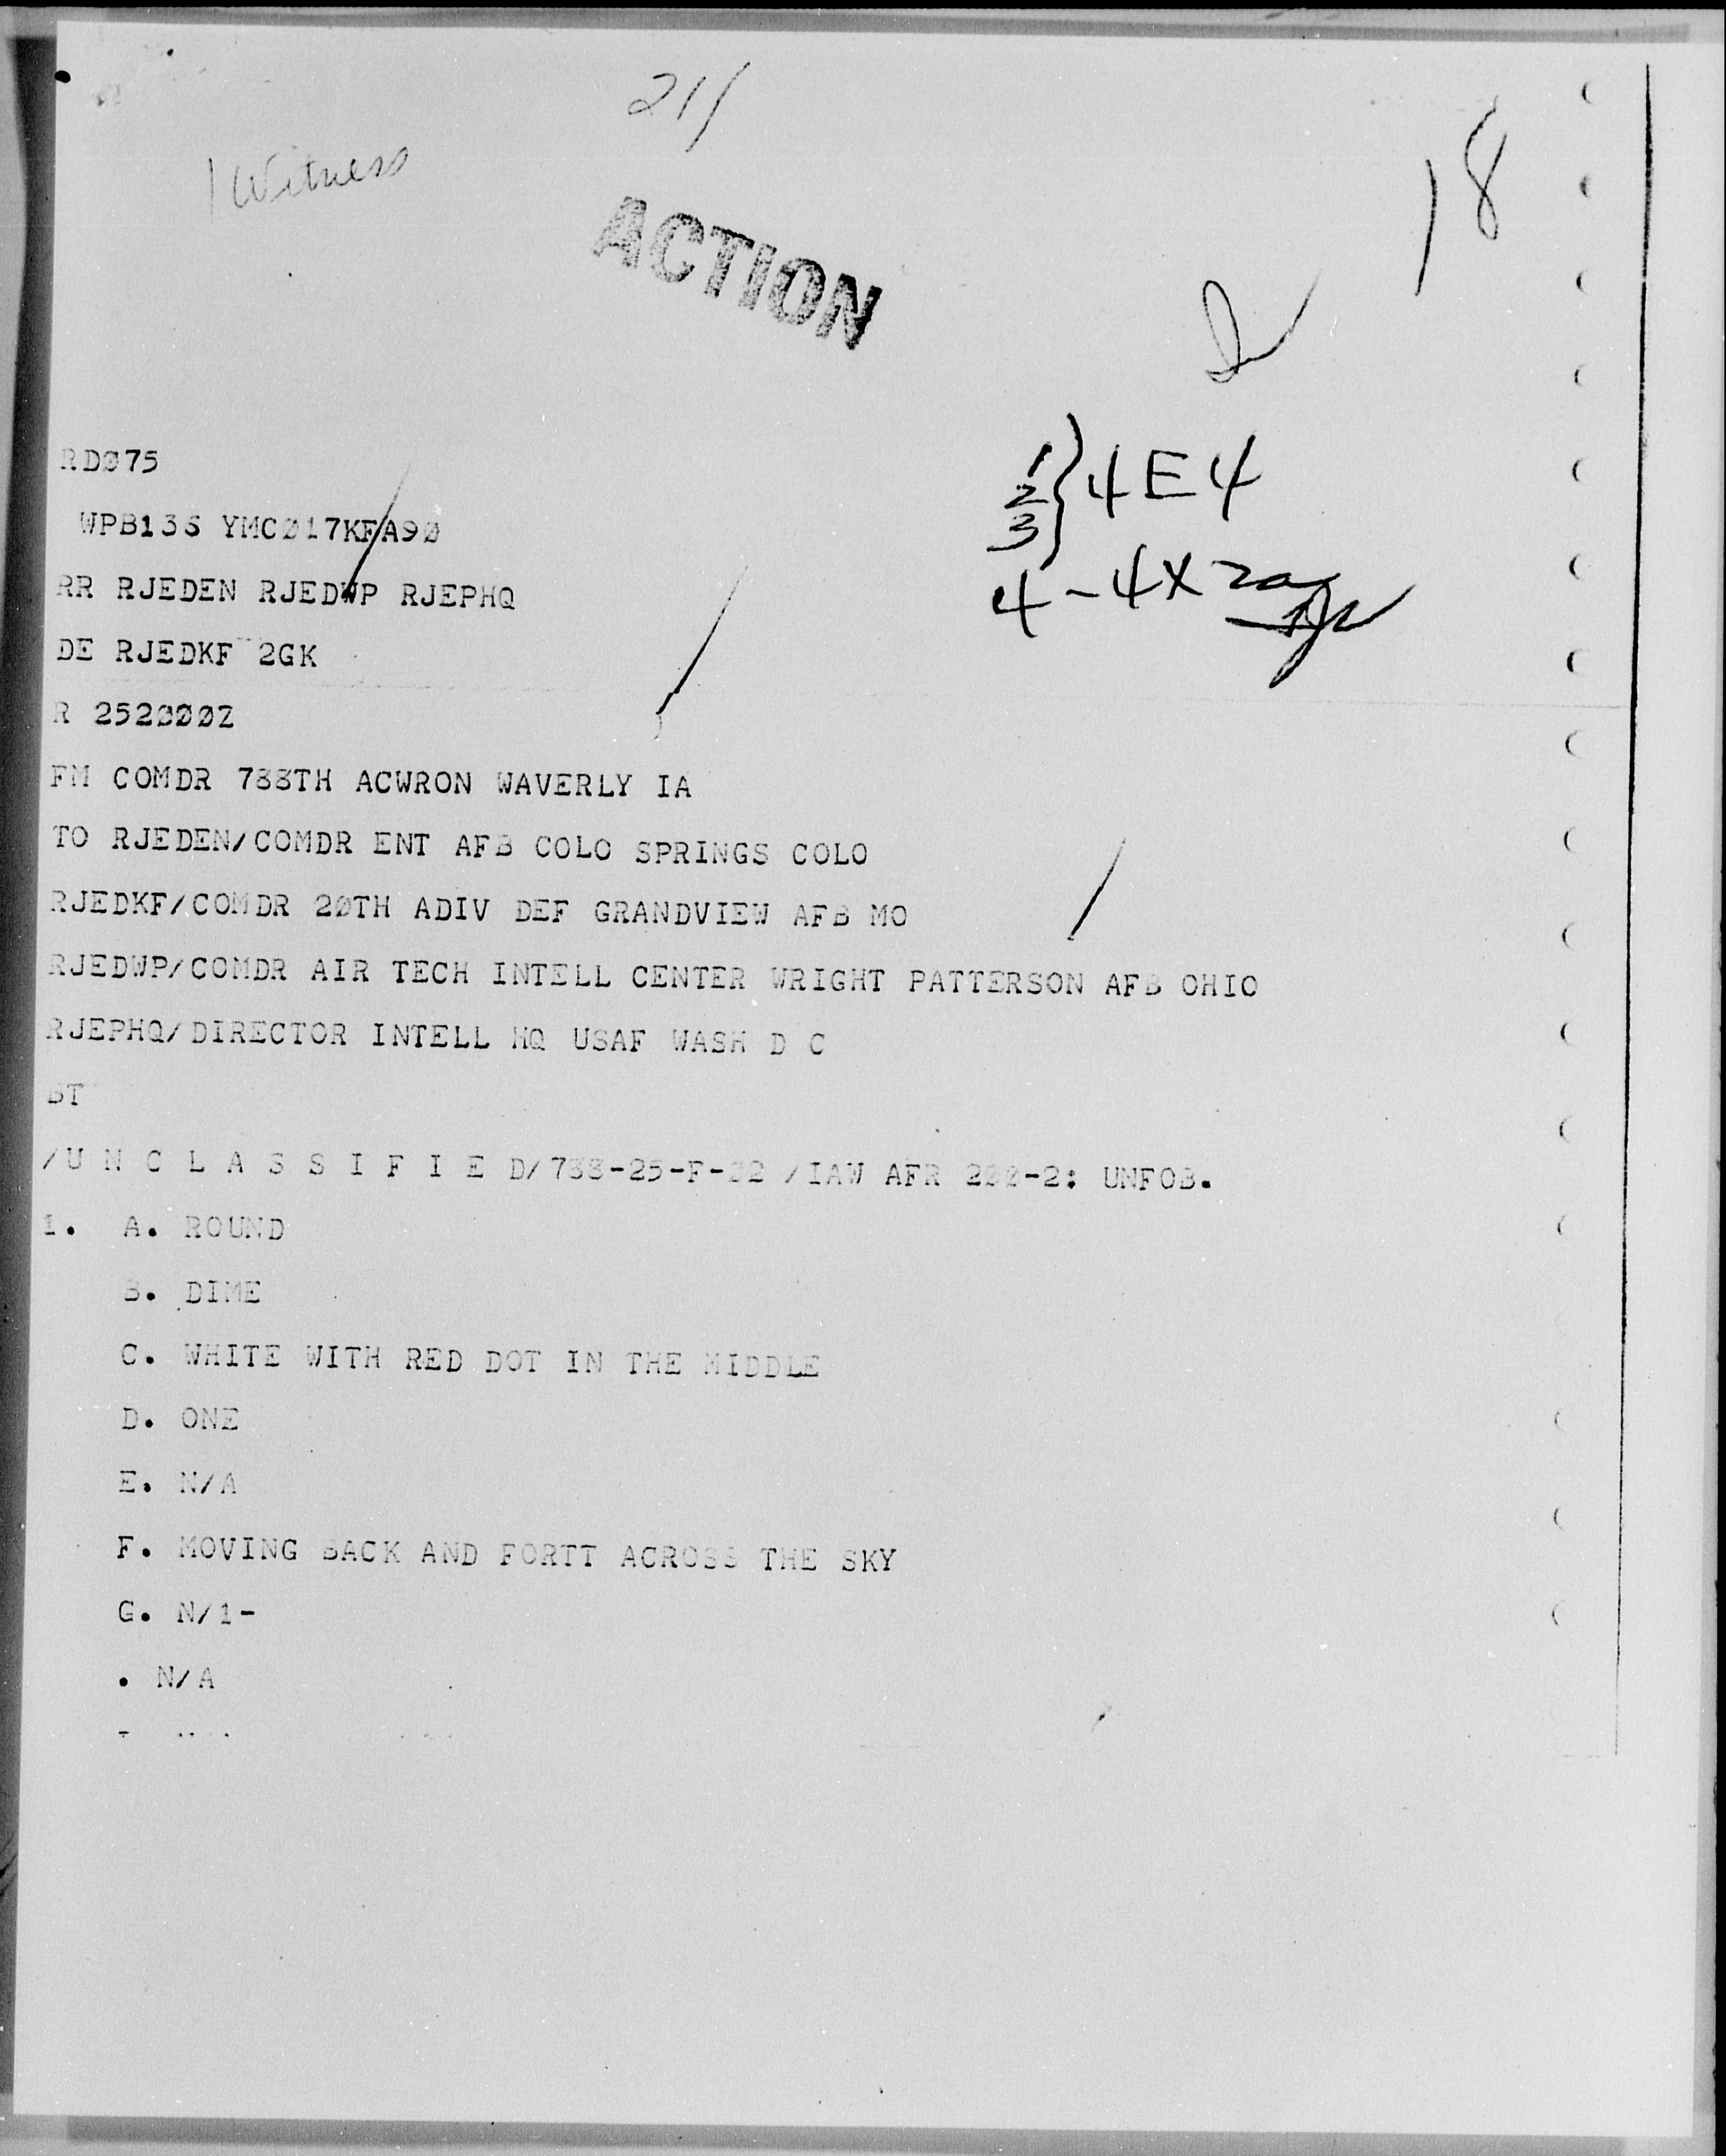 211
1 Witness
18
ACTION
1
2 } 4E4
3
4-4X
RDØ75
WPB136 YMCØ17KFA9Ø
RR RJEDEN RJEDWP RJEPHQ
DE RJEDKF 2GK
R 2522ØØZ
FM COMDR 788TH ACWRON WAVERLY IA
TO RJEDEN/COMDR ENT AFB COLO SPRINGS COLO
RJEDKF/COMDR 2ØTH ADIV DEF GRANDVIEW AFB MO
RJEDWP/COMDR AIR TECH INTELL CENTER WRIGHT PATTERSON AFB OHIO
RJEPHQ/DIRECTOR INTELL HQ USAF WASH D C
BT
/U N C L A S S I F I E D/ /IAW AFR 2ØØ-2: UNFOB.
1. A. ROUND
B. DIME
C. WHITE WITH RED DOT IN THE MIDDLE
D. ONE
E. N/A
F. MOVING BACK AND FORTT ACROSS THE SKY
G. N/1-
. N/A